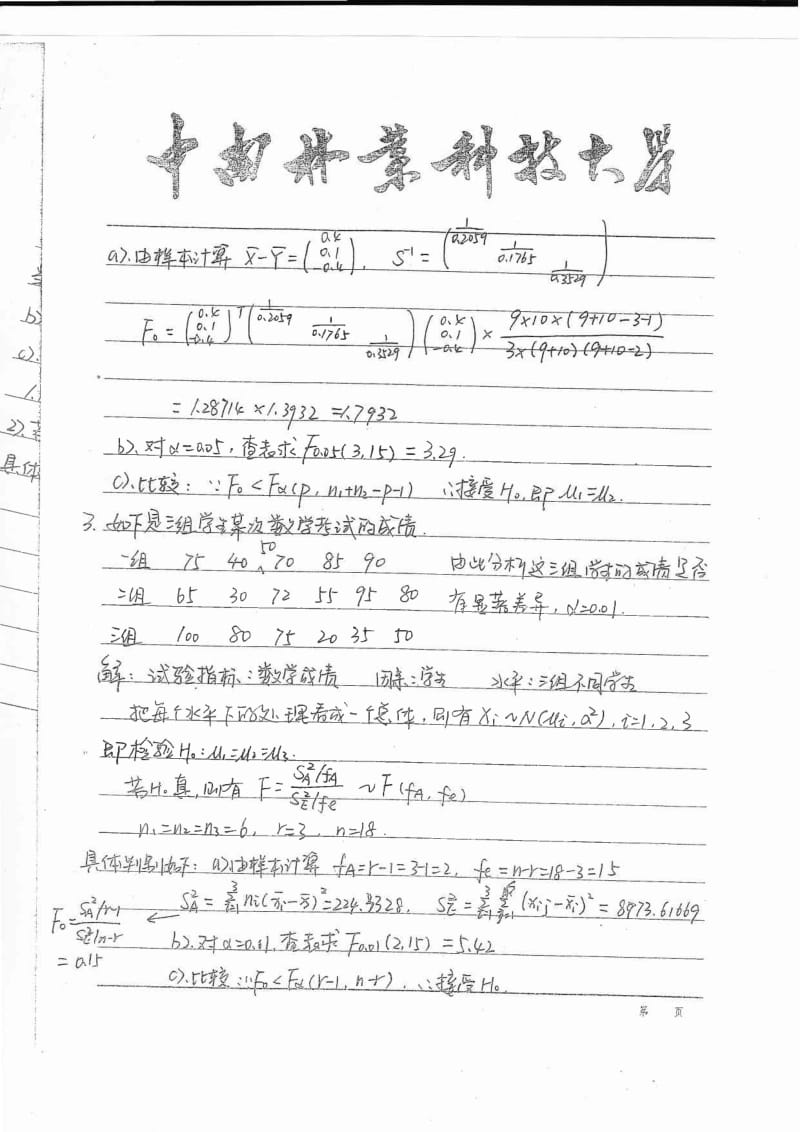 中南林业科技大学
a).由样本计算 X̄-Ȳ = (0.4 0.1 -0.4), S⁻¹ = (1/0.2059 1/0.1765 1/0.3529)
F₀ = (0.4 0.1 -0.4)ᵀ (1/0.2059 1/0.1765 1/0.3529) (0.4 0.1 -0.4) × 9×10×(9+10-3-1) / 3×(9+10)(9+10-2)
= 1.28714 × 1.3932 = 1.7932
b).对α=0.05,查表求 F0.05(3,15) = 3.29.
c).比较: ∵F₀<Fα(p, n₁+n₂-p-1) ∴接受H₀,即 μ₁=μ₂.
3. 如下是三组学生某次数学考试的成绩.
一组 75 40 50 70 85 90 由此分析这三组学生的成绩是否
二组 65 30 72 55 95 80 有显著差异, α=0.01.
三组 100 80 75 20 35 50
解: 试验指标: 数学成绩 因素: 学生 水平: 三组不同学生
把每个水平下的处理看成一个总体, 则有 Xi~N(μi, σ²), i=1, 2, 3
即检验H₀: μ₁=μ₂=μ₃.
若H₀真, 则有 F = (S²A/fA) / (S²E/fe) ~ F(fA, fe)
n₁=n₂=n₃=6, r=3, n=18.
具体判别如下: a).由样本计算 fA=r-1=3-1=2, fe=n-r=18-3=15
F₀ = (S²A/r-1) / (S²E/n-r) ← S²A = Σ ni(x̄i-x̄)² = 224.3328, S²E = ΣΣ(xij-x̄i)² = 8973.61669
b).对α=0.01, 查表求 F0.01(2,15) = 5.42
= 0.15
c).比较 ∵F₀<Fα(r-1, n-r), ∴接受H₀.
第 页
b)
c).
1.
2).
具体